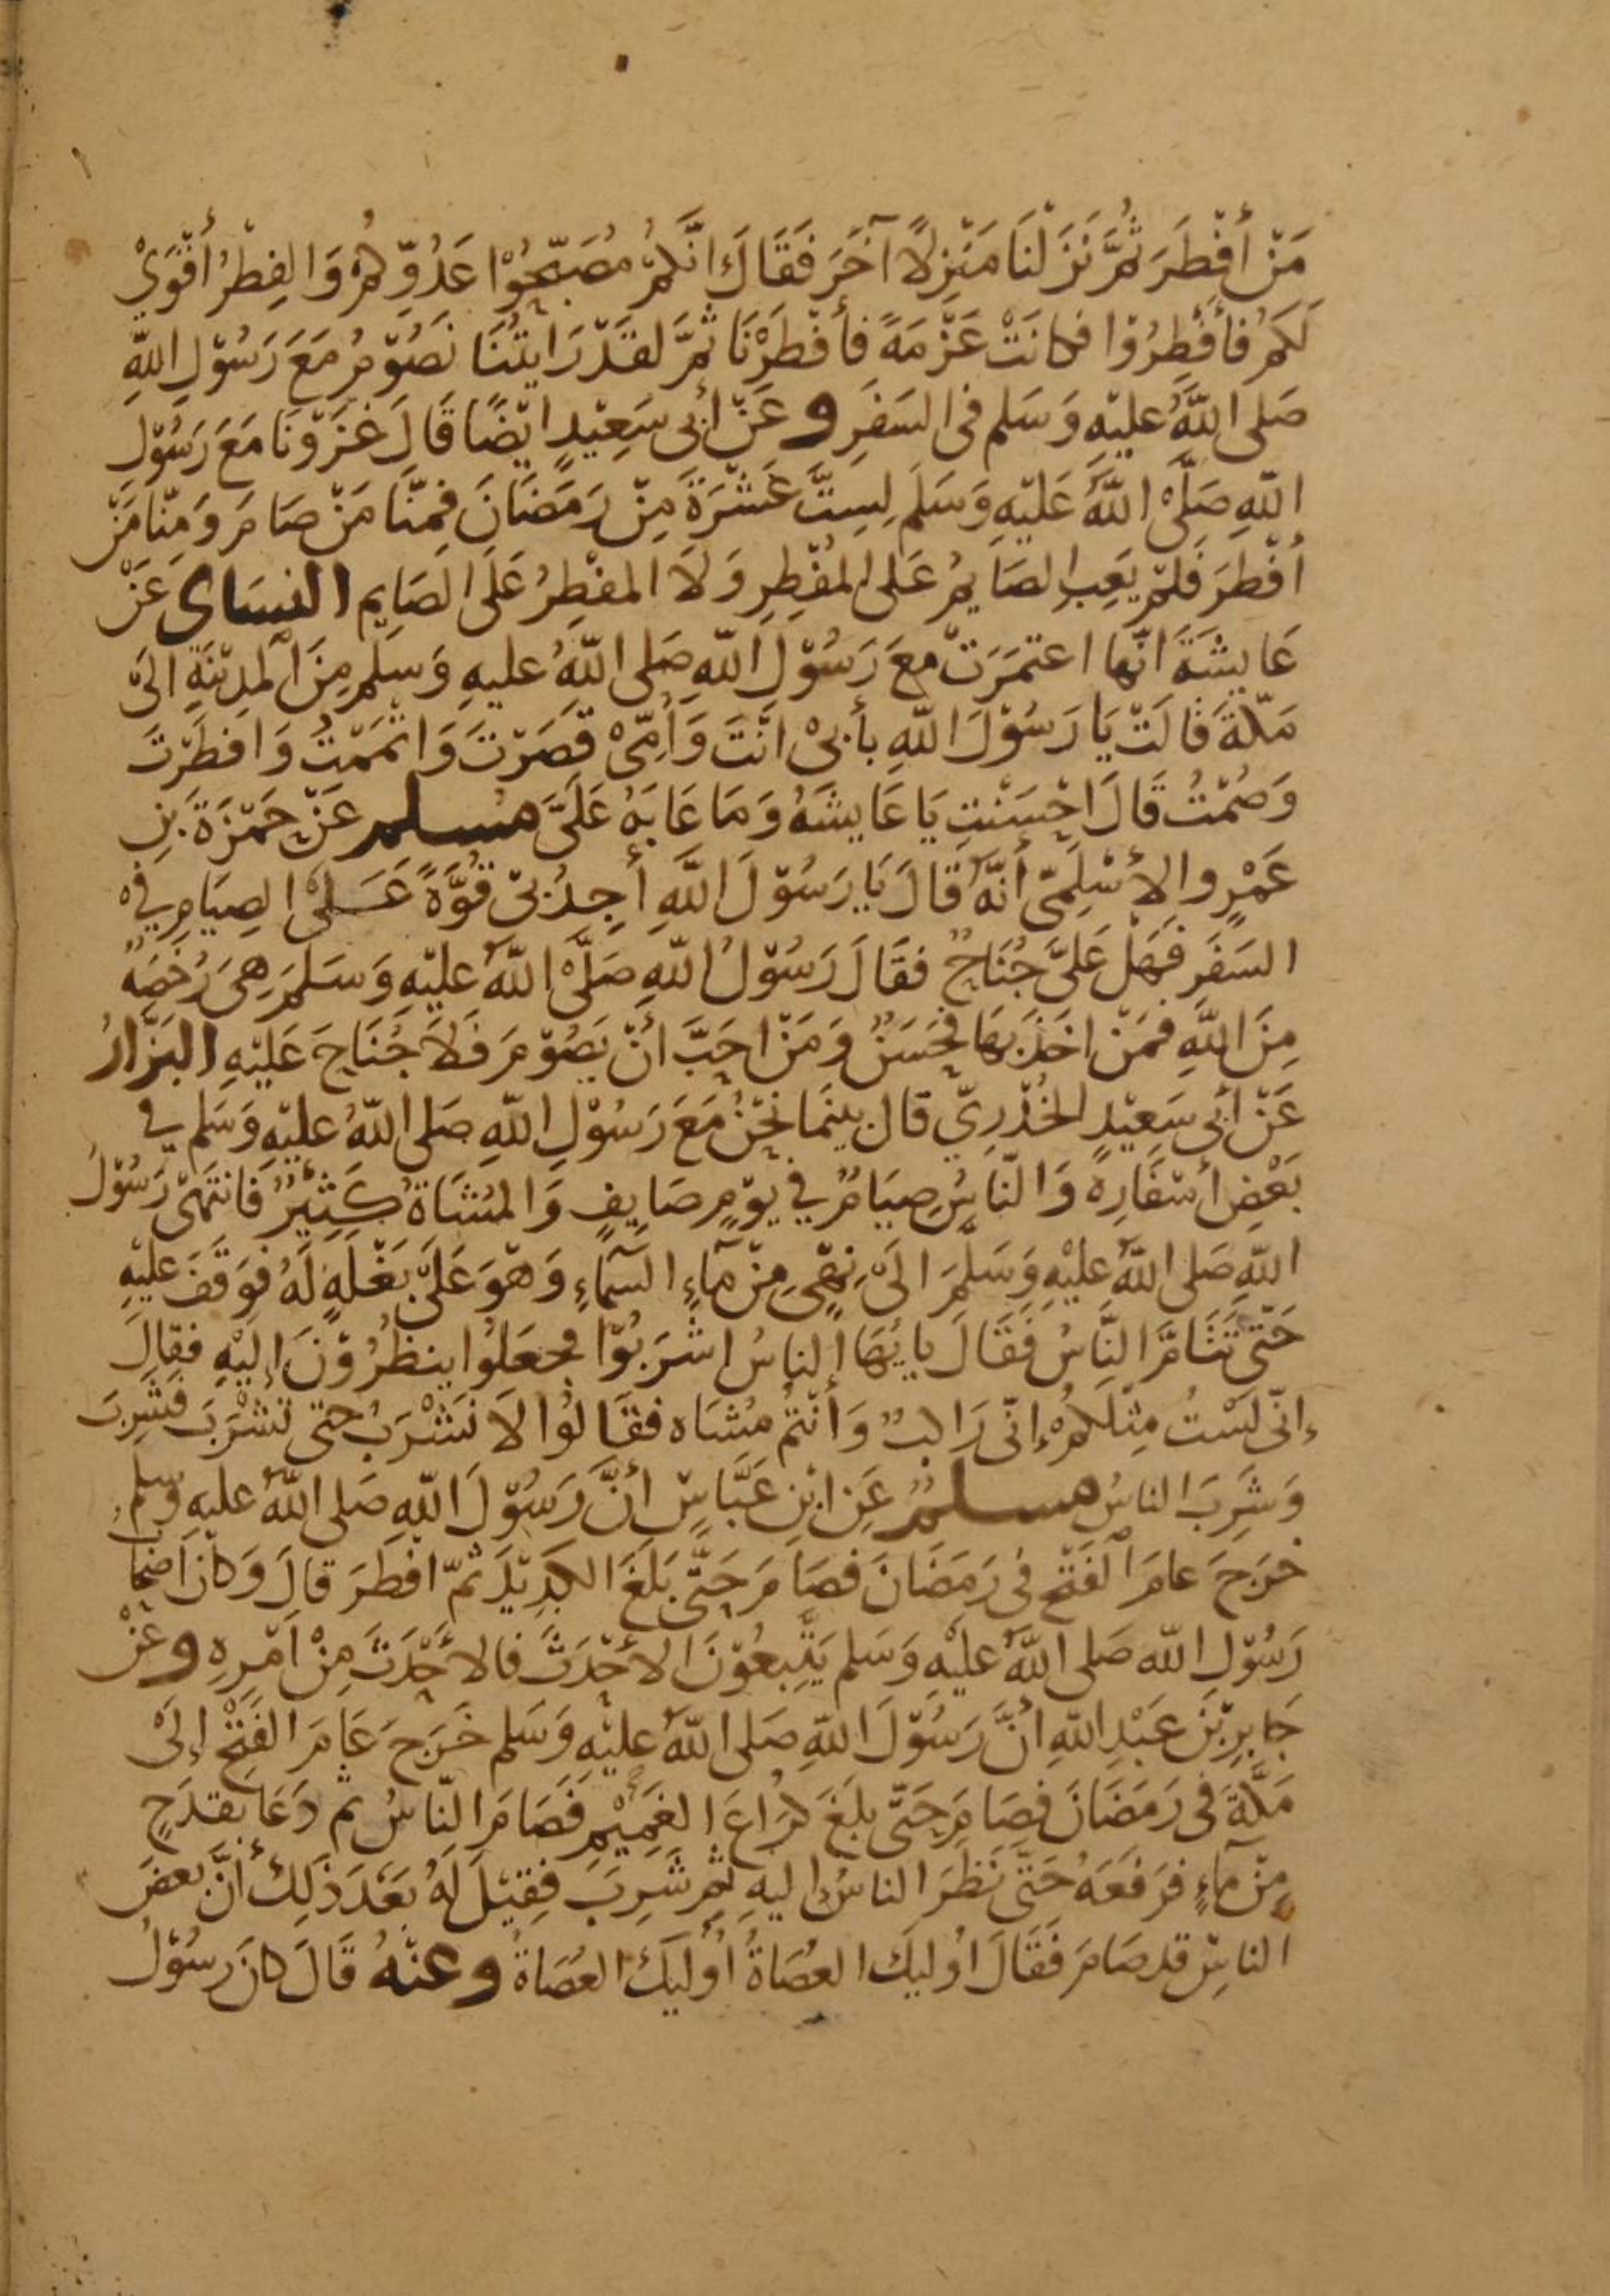 مَنْ أَفْطَرَ ثُمَّ نَزَلْنَا مَنْزِلًا آخَرَ فَقَالَ انَّكُمْ مُصَبِّحُوْا عَدُوِّكُمْ وَالفِطْرُ أَقْوَيْ
لَكُمْ فَأَفْطِرُوْا فكانَتْ عَزْمَةً فأَفْطَرْنَا ثُمَّ لقَدْ رَايتُنَا نَصُوْمُ مَعَ رَسُوْلِ اللّهِ
صَلى اللَّهُ عليْهِ وَسَلم فى السَفَرِ وعَنْ أبى سَعِيْدٍ ايْضًا قَالَ غَزَوْنَا مَعَ رَسُوْلِ
اللّهِ صَلَّىْ اللَّهُ عَليْهِ وَسَلَمَ لِسِتَّ عَشْرَةَ مِنْ رَمَضَانَ فمِنَّا مَنْ صَامَ وَمِنَّا مَنْ
أفْطَرَ فَلَمْ يَعِبِ الصَايِمُ عَلى المُفْطِرِ وَلَا المفْطِرُ عَلَى الصَايِمِ النسَاى عَنْ
عَايِشَةَ انّها اعتمَرَتْ معَ رَسُوْلِ اللّهِ صَلى اللّهُ عليهِ وَسَلم مِنَ المدِيْنَةِ الىَ
مَكّةَ قَالَتْ يَا رَسُوْلَ اللّهِ بأَبىْ انْتَ وَأُمِّىْ قَصَرْتَ وَاتْمَمْتُ وَافطَرْتَ
وَصُمْتُ قَالَ احْسَنْتِ يَا عَايشَهُ وَمَا عَابَهُ عَلَىَّ مسلم عَنْ حَمْزَةَ بنِ
عَمْرٍو الأسْلَمِىّ أنَّهُ قَالَ يَا رَسُوْلَ اللَّهِ أَجِدُ بىْ قُوَّةً عَلىْ الصِيَامِ فِي
السَفَرِ فَهَلْ عَلىَّ جُنَاحٌ فقَالَ رَسُوْلُ اللّهِ صَلَّىْ اللَّهُ عليْهِ وَسَلمَ هِىَ رُخصَهٌ
مِنَ اللَّهِ فمَنْ اخَذَ بهَا فحَسَنٌ وَمَنْ احَبَّ انْ يَصُوْمَ فَلَا جُنَاحَ عَلَيْهِ البَزَّارُ
عَنْ أبى سَعِيْدٍ الخُدْرِيّ قال بينمَا نحْنُ مَعَ رَسُوْلِ اللّهِ صَلى اللّهُ عليْهِ وَسَلم فى
بَعْضِ أسْفَارِهِ وَالنَّاسُ صِيَامٌ فِي يوْمٍ صَايِفٍ وَالمُشَاةُ كَثِيْرٌ فَانتَهَىْ رَسُوْلُ
اللّهِ صَلى اللَّهُ عليْهِ وَسَلَّمَ الَىْ نِهْىٍ مِنْ مآءٍ السَّمآءِ وَهْوَ عَلَىْ بَغْلَةٍ لَهُ فوَقَفَ عليْهِ
حَتّى تَتَامَّ النَّاسُ فَقَالَ يايُّهَا الناسُ اشْرَبُوْا فجعَلوُا ينظُرُوْنَ اليْهِ فقالَ
إنّى لَسْتُ مِثْلَكُمْ إنّى رَاكبٌ وَأنْتُمْ مُشَاه فقَالوُا لاَ نَشْرَبُ حتى تشْرَبَ فشَرِبَ
وَشَرِبَ الناسُ مسلمٌ عَنِ ابْنِ عَبَّاسٍ أنَّ رَسُوْلَ اللّهِ صَلى اللَّهُ عليهِ وسلم
خرَجَ عامَ الفَتْحِ فى رَمَضَانَ فصَامَ حَتَّى بَلَغَ الكَدِيْدَ ثمّ افْطَرَ قالَ وَكانَ اصْحَابُ
رَسُوْلِ اللّه صَلى اللَّهُ عليْهِ وَسَلم يَتَّبِعُوْنَ الأَحْدَثَ فالأَحْدَثَ مِنْ اَمْرِهِ وعَنْ
جَابِرِ بْنِ عَبْدِ اللّهِ انَّ رَسُوْلَ اللّهِ صَلى اللَّهُ عليْهِ وَسَلم خَرَجَ عَامَ الفَتْحِ إلَىْ
مَكَّةَ فى رَمَضَانَ فصَامَ حَتّى بلَغَ كرَاعَ الغَمِيْمِ فَصَامَ النَّاسُ ثم دَعَا بقدَحٍ
مِنْ مآءٍ فرَفعَهُ حَتَّى نَظَرَ الناسُ اليهِ ثم شَرِبَ فقِيْلَ لَهُ بَعْدَ ذَلِكَ أَنَّ بعضَ
الناسِ قد صَامَ فَقَالَ اُوليِكَ العُصَاةُ اُوليِكَ العُصَاةُ وعَنْهُ قَالَ كانَ رسُوْلُ